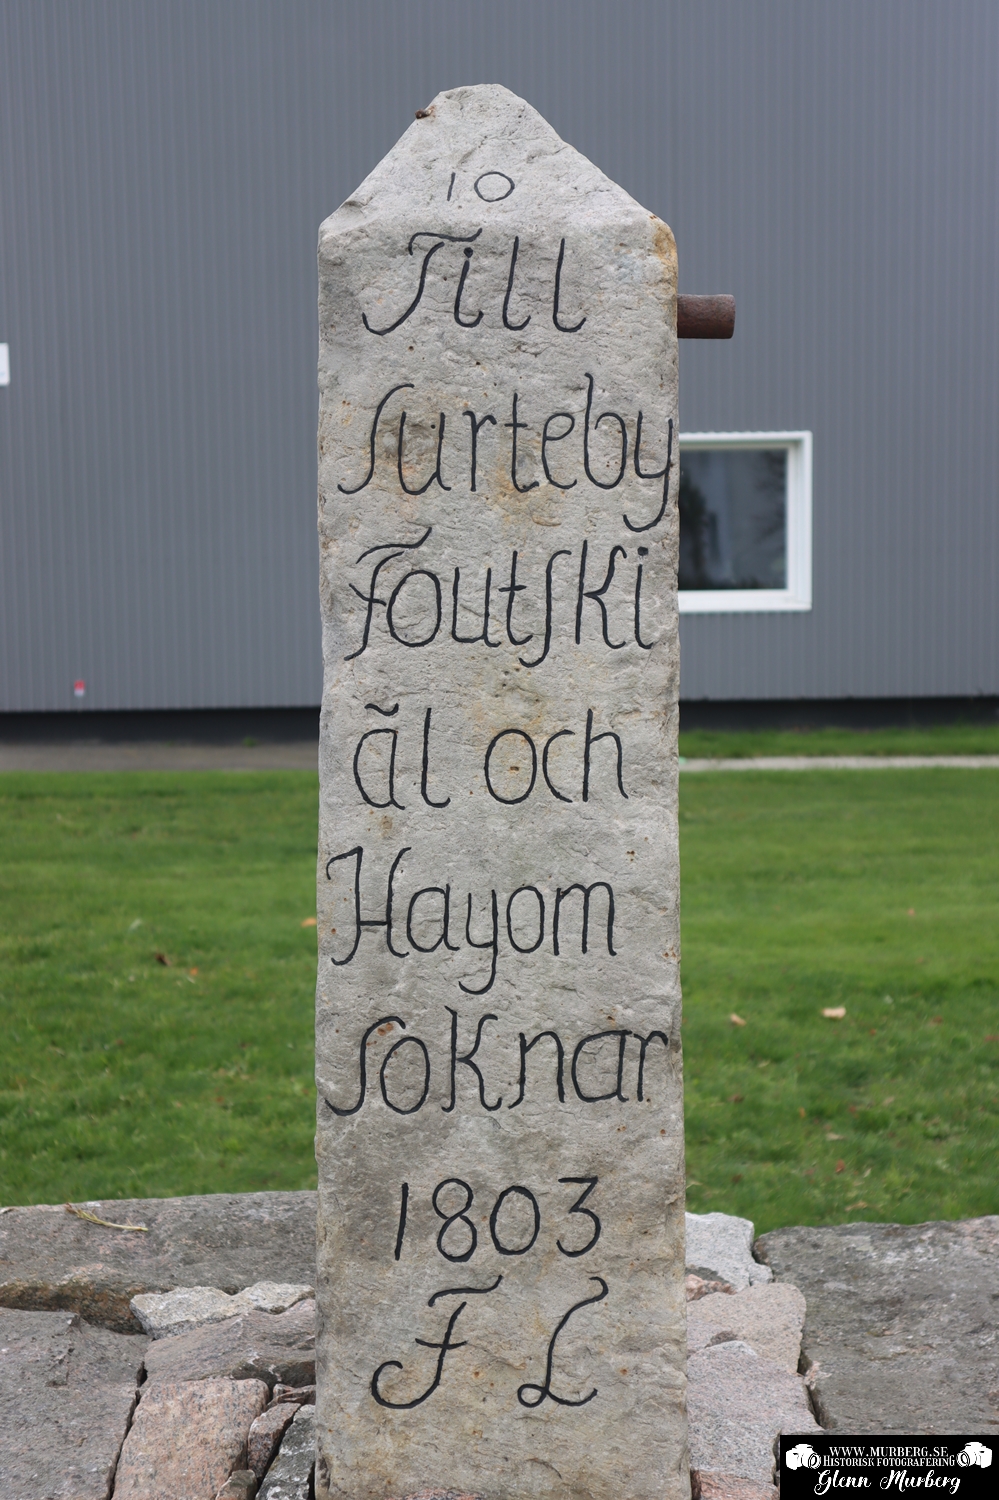 10
Till
Surteby
Foutski
ăl och
Hayom
soknar
1803
F L
WWW.MURBERG.SE
HISTORISK FOTOGRAFERING
Glenn Murberg